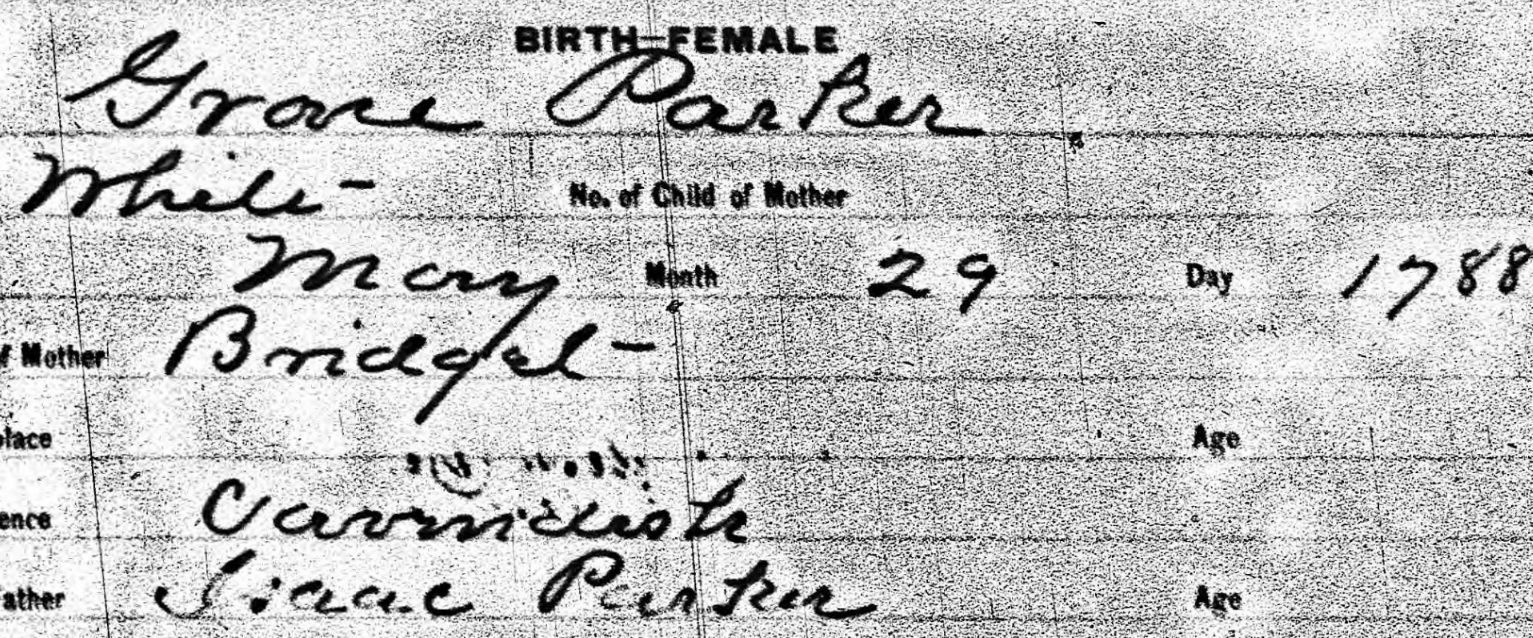 BIRTH—FEMALE
Grace Parker
White- No. of Child of Mother
May Month 29 Day 1788
f Mother Bridget-
lace Age
ence Cavendish
ather Isaac Parker Age